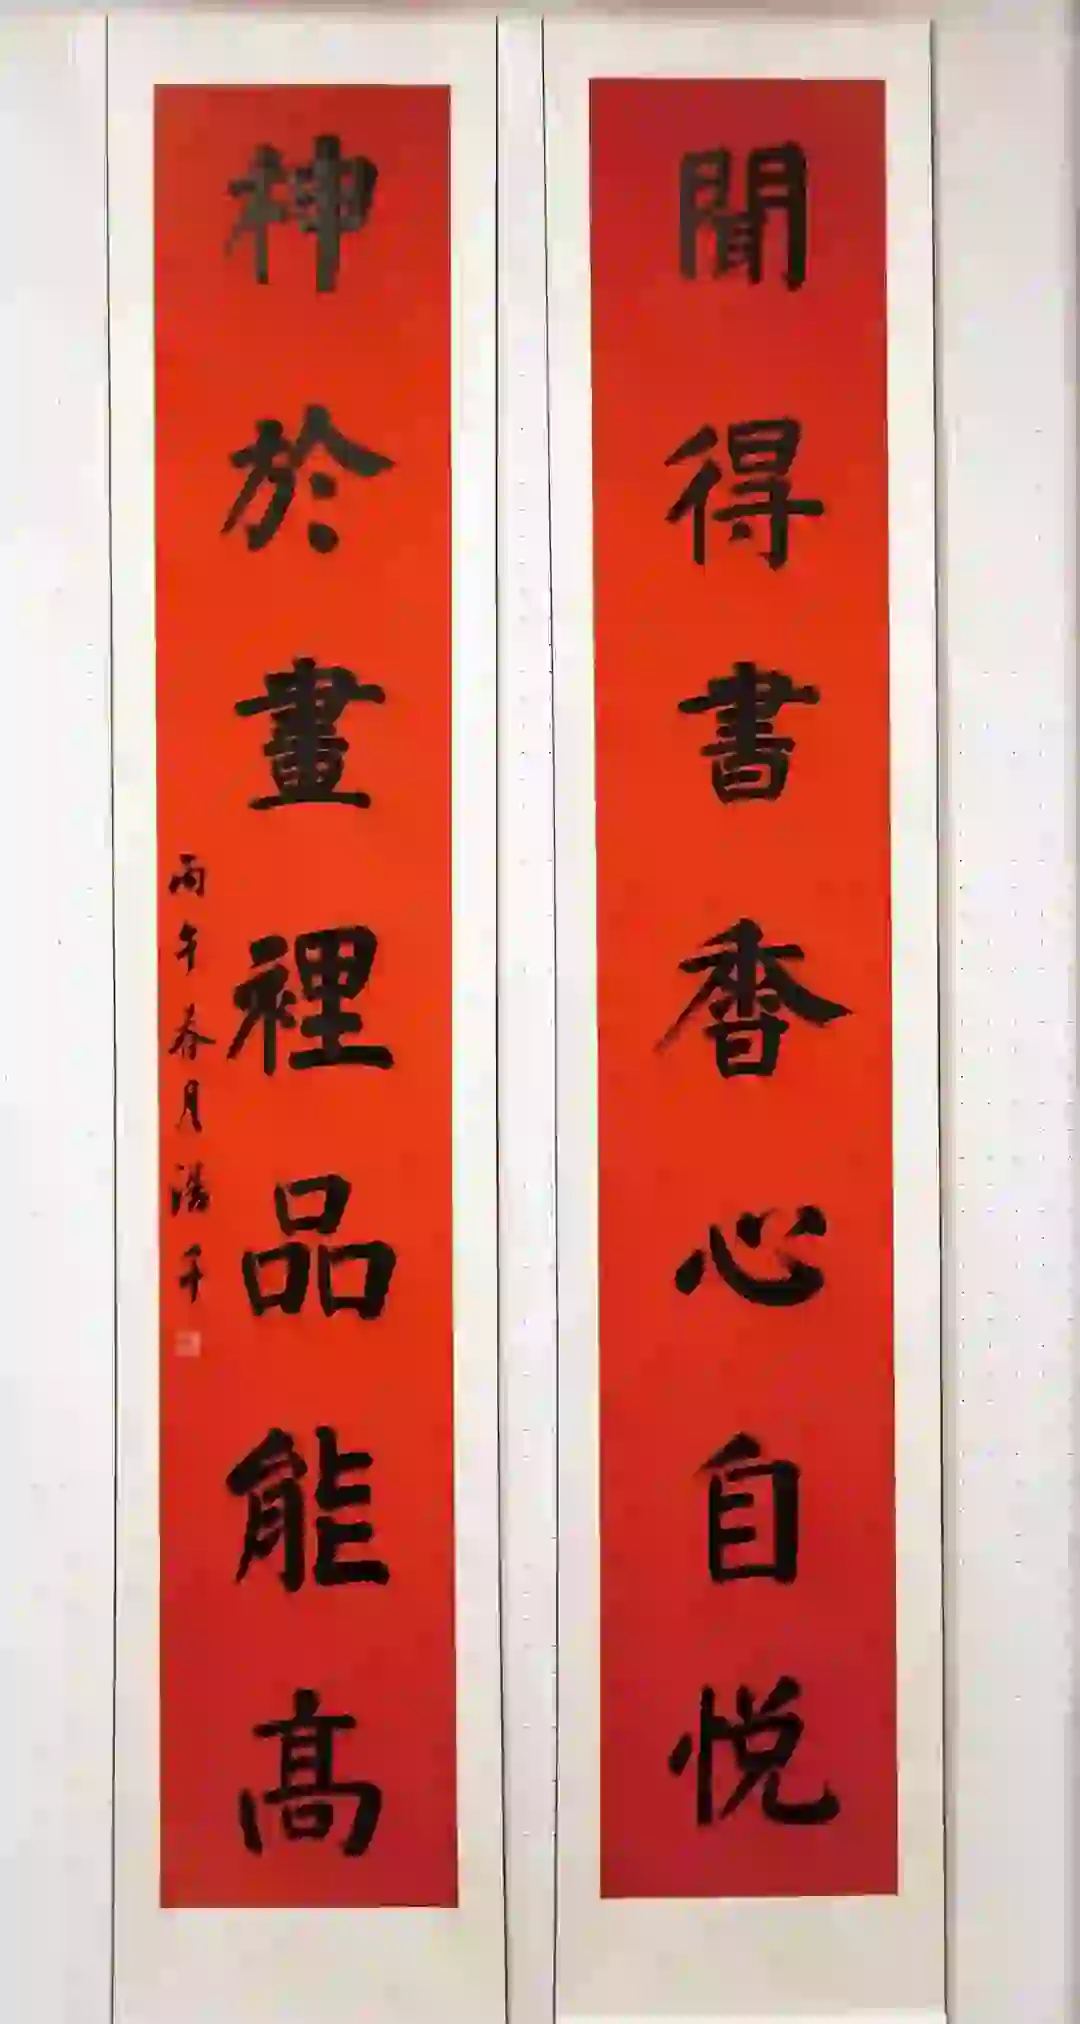 聞得書香心自悦
神於畫裡品能高
丙午春月